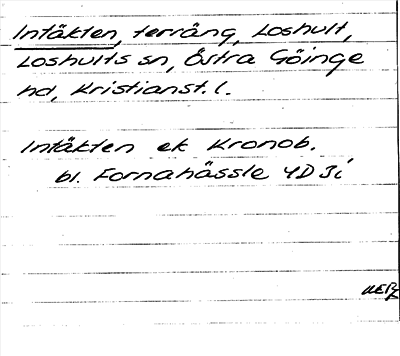 Intäkten, terräng, Loshult,
Loshults sn, Östra Göinge
hd, Kristianst. l.
Intäkten ek Kronob.
bl. Fornahässle 4D 3i